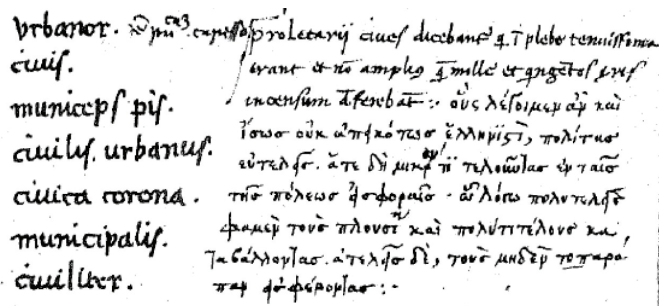 vrbanor.
ciuis.
municeps pis.
ciuilis. urbanus.
ciuica corona.
municipalis.
ciuiliter.
proletarij ciues dicebant q ī plebe tenuissima
erant et nō ampliꝰ q̄ mille et qngētos eris
in censum deferebāt :· οὓς λέγοιμεν ἂν καὶ
ἴσως οὐκ ἀπεικότως ἑλληνιστὶ, πολίτας
εὐτελεῖς. ἅτε δὴ μικρόν τι τελοῦντας ἐν ταῖς
τῆς πόλεως εἰσφοραῖς. ᾧ λόγῳ πολυτελεῖς
φαμὲν τοὺς πλουσίους καὶ πολυτιτέλους κα
ταβάλλοντας. ἀτελεῖς δὲ, τοὺς μηδὲν τοπαρα
παν εἰσφέροντας :·